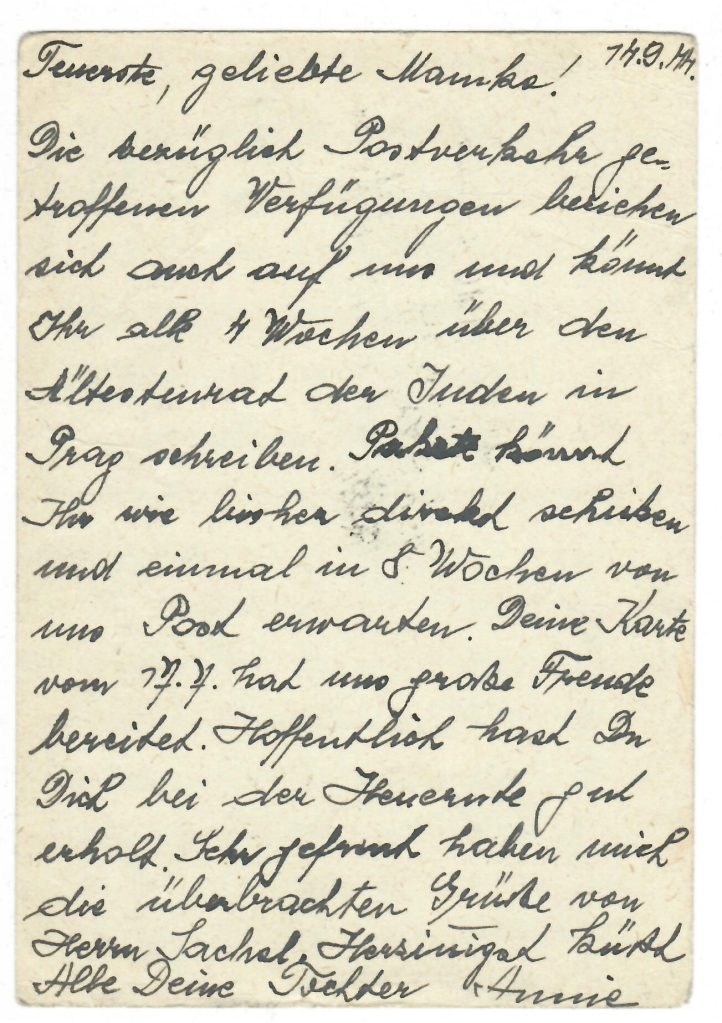 14.9.44.
Teuerste, geliebte Mamko!
Die bezüglich Postverkehr ge-
troffenen Verfügungen beziehen
sich auch auf uns und könnt
Ihr alle 4 Wochen über den
Ältestenrat der Juden in
Prag schreiben. Pakete könnt
Ihr wie bisher direkt schicken
und einmal in 8 Wochen von
uns Post erwarten. Deine Karte
vom 17.7. hat uns große Freude
bereitet. Hoffentlich hast Du
Dich bei der Heuernte gut
erholt. Sehr gefreut haben mich
die überbrachten Grüße von
Herrn Sachsl. Herzinnigst küßt
Alle Deine Tochter Annie